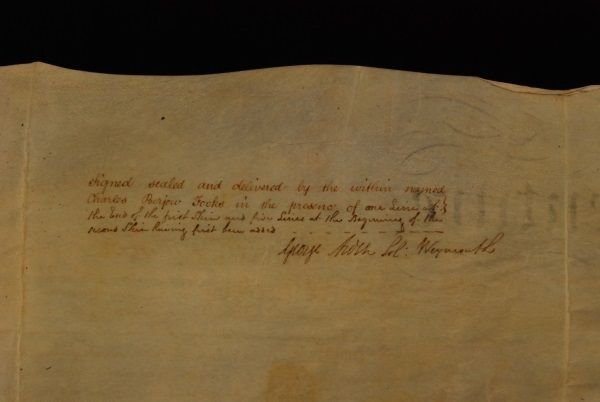 Signed sealed and delivered by the within named
Charles Berjew Fooks in the presence of one Line at
the End of the first Skin and five Lines at the Beginning of the
second Skin having first been added
George Sol: Weymouth